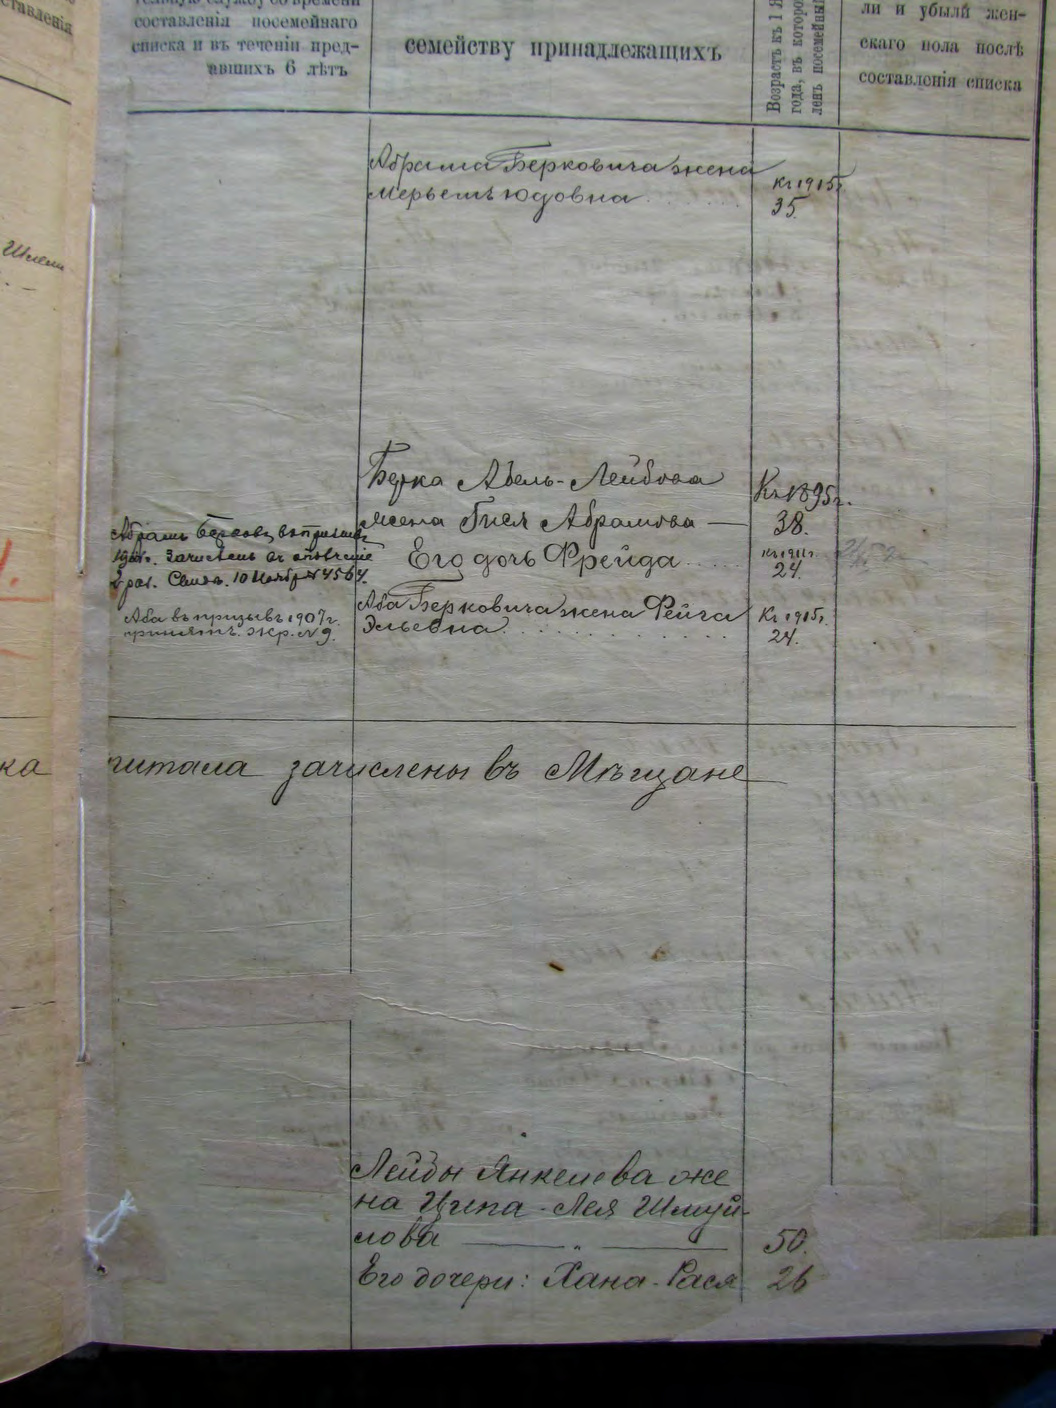 ставленія
тельную службу со времени
составленія посемейнаго
списка и въ теченіи пред-
авшихъ 6 лѣтъ
семейству принадлежащихъ
Возрастъ къ 1 Я
года, въ которо
ленъ посемейный
ли и убыли жен-
скаго пола послѣ
составленія списка
Абрама Берковича жена
Мерьемъ Юдовна
Къ 1915г.
35.
Шлема
Берка Абель-Лейбова
жена Гися Абрамова —
Къ 1895г.
38.
Его дочь Фрейда
Къ 1911г.
24.
Абрамъ Берков. въ призывъ
Зачисленъ въ ополченіе
2 раз. Свид. 10 Ноябр. № 4564.
Аба въ призывъ 1907г.
принятъ. жр. № 9.
Аба Берковича жена Рейга
Эльевна
Къ 1915г.
24.
ка питала зачислены въ Мѣщане
Лейбы Янкелева же
на Ципа-Лея Шмуй-
лова — „ — 50.
Его дочери: Хана-Рася 26